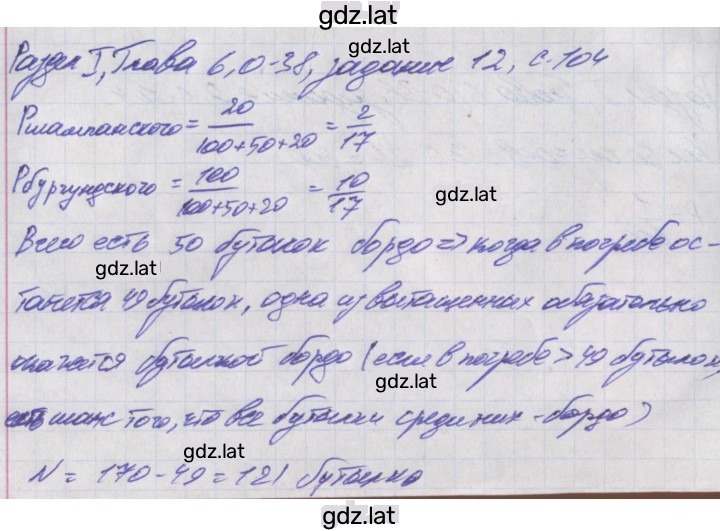 gdz.lat
Раздел I, Глава 6, О-38, задание 12, с. 104
Pшампанского = 20/(100+50+20) = 2/17
gdz.lat
Pбургундского = 100/(100+50+20) = 10/17
gdz.lat
Всего есть 50 бутылок бордо => когда в погребе ос-
gdz.lat
танется 49 бутылок, одна из вытащенных обязательно
окажется бутылкой бордо (если в погребе > 49 бутылок,
gdz.lat
есть шанс того, что все бутылки среди них - бордо)
gdz.lat
N = 170 - 49 = 121 бутылка
gdz.lat